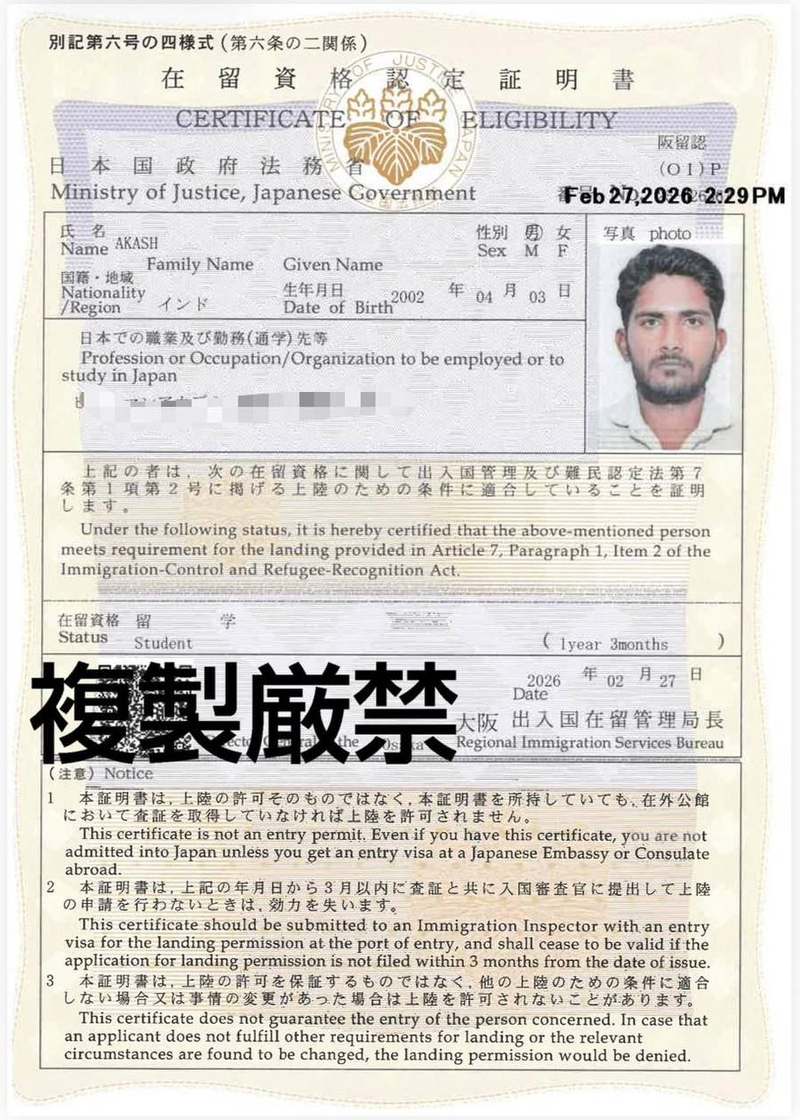 別記第六号の四様式 (第六条の二関係)
在留資格認定証明書
CERTIFICATE OF ELIGIBILITY
MINISTRY OF JUSTICE JAPAN
阪留認
(O1)P
日本国政府法務省
Ministry of Justice, Japanese Government
Feb 27,2026 2:29 PM
氏名
Name AKASH
Family Name Given Name
性別 男 女
Sex M F
写真 photo
国籍・地域
Nationality
/Region インド
生年月日
Date of Birth 2002 年 04 月 03 日
日本での職業及び勤務(通学)先等
Profession or Occupation/Organization to be employed or to
study in Japan
上記の者は, 次の在留資格に関して出入国管理及び難民認定法第7
条第1項第2号に掲げる上陸のための条件に適合していることを証明
します。
Under the following status, it is hereby certified that the above-mentioned person
meets requirement for the landing provided in Article 7, Paragraph 1, Item 2 of the
Immigration-Control and Refugee-Recognition Act.
在留資格 留 学
Status Student
( 1year 3months )
2026 年 02 月 27 日
Date
複製厳禁
大阪 出入国在留管理局長
General the Osaka Regional Immigration Services Bureau
(注意) Notice
1 本証明書は, 上陸の許可そのものではなく, 本証明書を所持していても, 在外公館
において査証を取得していなければ上陸を許可されません。
This certificate is not an entry permit. Even if you have this certificate, you are not
admitted into Japan unless you get an entry visa at a Japanese Embassy or Consulate
abroad.
2 本証明書は, 上記の年月日から3月以内に査証と共に入国審査官に提出して上陸
の申請を行わないときは, 効力を失います。
This certificate should be submitted to an Immigration Inspector with an entry
visa for the landing permission at the port of entry, and shall cease to be valid if the
application for landing permission is not filed within 3 months from the date of issue.
3 本証明書は, 上陸の許可を保証するものではなく, 他の上陸のための条件に適合
しない場合又は事情の変更があった場合は上陸を許可されないことがあります。
This certificate does not guarantee the entry of the person concerned. In case that
an applicant does not fulfill other requirements for landing or the relevant
circumstances are found to be changed, the landing permission would be denied.